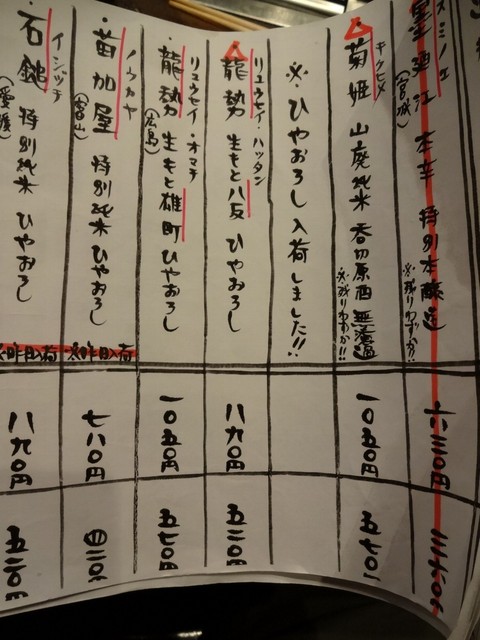 スミノエ
墨廼江 本辛 特別本醸造
(宮城)
※残りわずか!!
六三〇円
キクヒメ
菊姫 山廃純米 呑切原酒 無濾過
※残りわずか!!
一〇五〇円
五七〇
※ひやおろし入荷しました!!
リュウセイ・ハッタン
龍勢 生もと八反 ひやおろし
八九〇円
五二〇円
リュウセイ・オマチ
龍勢 生もと雄町 ひやおろし
(広島)
一〇五〇円
五七〇円
ノウカヤ
苗加屋 特別純米 ひやおろし
(富山)
※昨日入荷
七八〇円
四二〇
イシヅチ
石鎚 特別純米 ひやおろし
(愛媛)
※昨日入荷
八九〇円
五二〇円